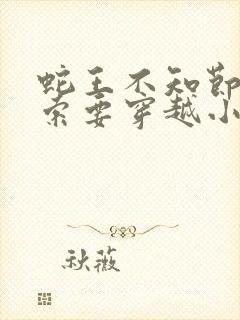 蛇王不知节
索要穿越小
秋薇